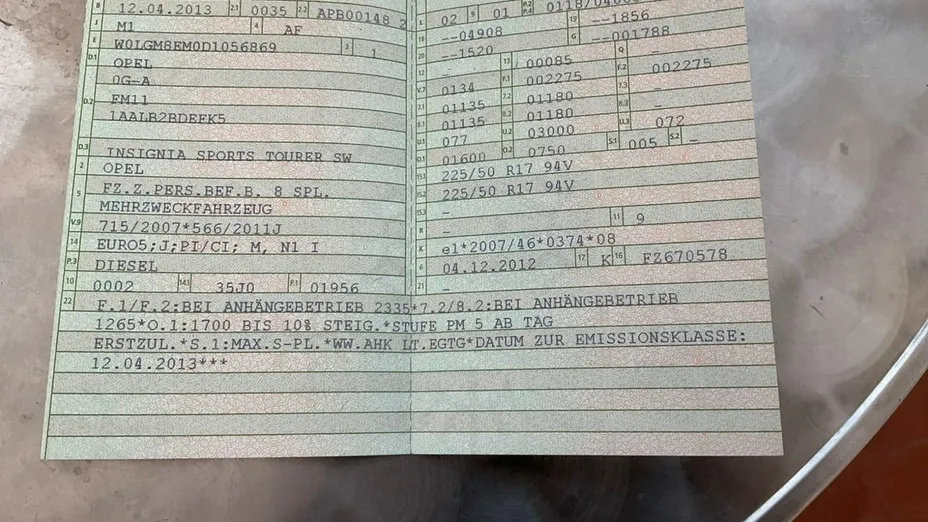 B 12.04.2013 2.1 0035 2.2 APB00148 2
J M1 4 AF
E W0LGM8EM0D1056869 3 1
D.1 OPEL
0G-A
D.2 FM11
1AALB2BDEFK5
D.3 INSIGNIA SPORTS TOURER SW
2 OPEL
5 FZ.Z.PERS.BEF.B. 8 SPL.
MEHRZWECKFAHRZEUG
V.9 715/2007*566/2011J
14 EURO5;J;PI/CI; M, N1 I
P.3 DIESEL
10 0002 14.1 35J0 P.1 01956
L 02 9 01 P.2 P.4
18 --04908 19 --1856
20 --1520 G --001788
12 - 13 00085 Q -
V.7 0134 F.1 002275 F.2 002275
7.1 01135 7.2 01180 7.3 -
8.1 01135 8.2 01180 8.3 -
U.1 077 U.2 03000 U.3 072
O.1 01600 O.2 0750 S.1 005 S.2 -
15.1 225/50 R17 94V
15.2 225/50 R17 94V
15.3 -
R - 11 9
K e1*2007/46*0374*08
6 04.12.2012 17 K 16 FZ670578
21 -
22 F.1/F.2:BEI ANHÄNGEBETRIEB 2335*7.2/8.2:BEI ANHÄNGEBETRIEB
1265*O.1:1700 BIS 10% STEIG.*STUFE PM 5 AB TAG
ERSTZUL.*S.1:MAX.S-PL.*WW.AHK LT.EGTG*DATUM ZUR EMISSIONSKLASSE:
12.04.2013***